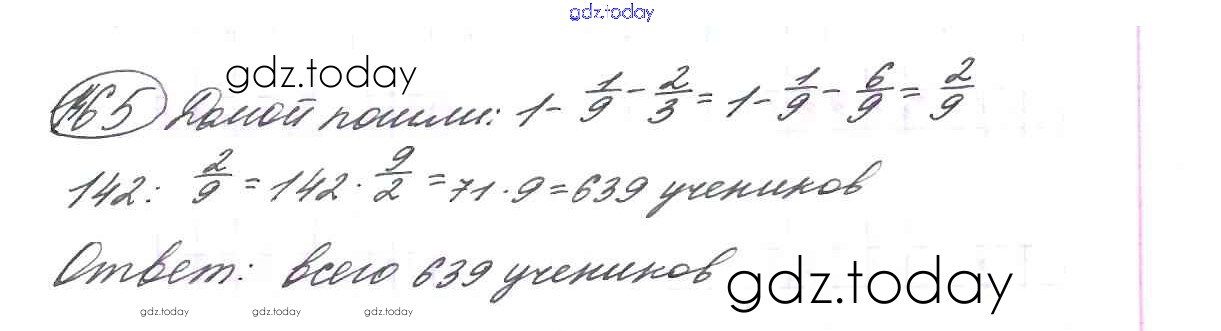 gdz.today
gdz.today
465 Домой пошли: 1 - 1/9 - 2/3 = 1 - 1/9 - 6/9 = 2/9
142 : 2/9 = 142 · 9/2 = 71 · 9 = 639 учеников
Ответ: всего 639 учеников
gdz.today
gdz.today gdz.today gdz.today